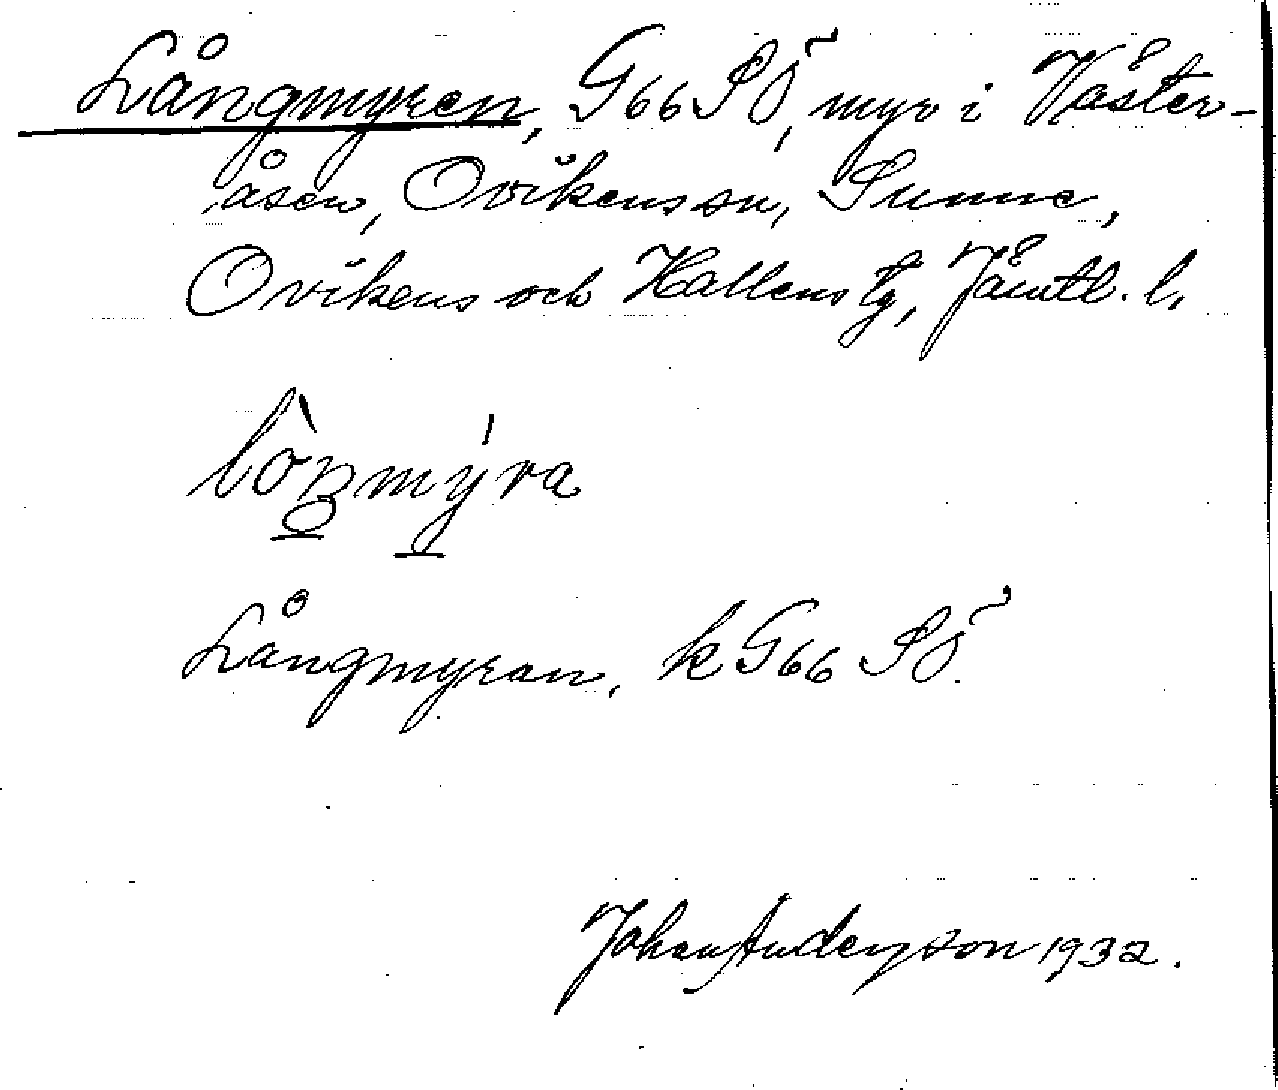 Långmyren, G66 SÖ, myr i Väster-
åsen, Ovikens sn, Sunne,
Ovikens och Hallens tg, Jämtl. l.
lòŋmýra
Långmyran, k G66 SÖ.
Johan Anderson 1932.